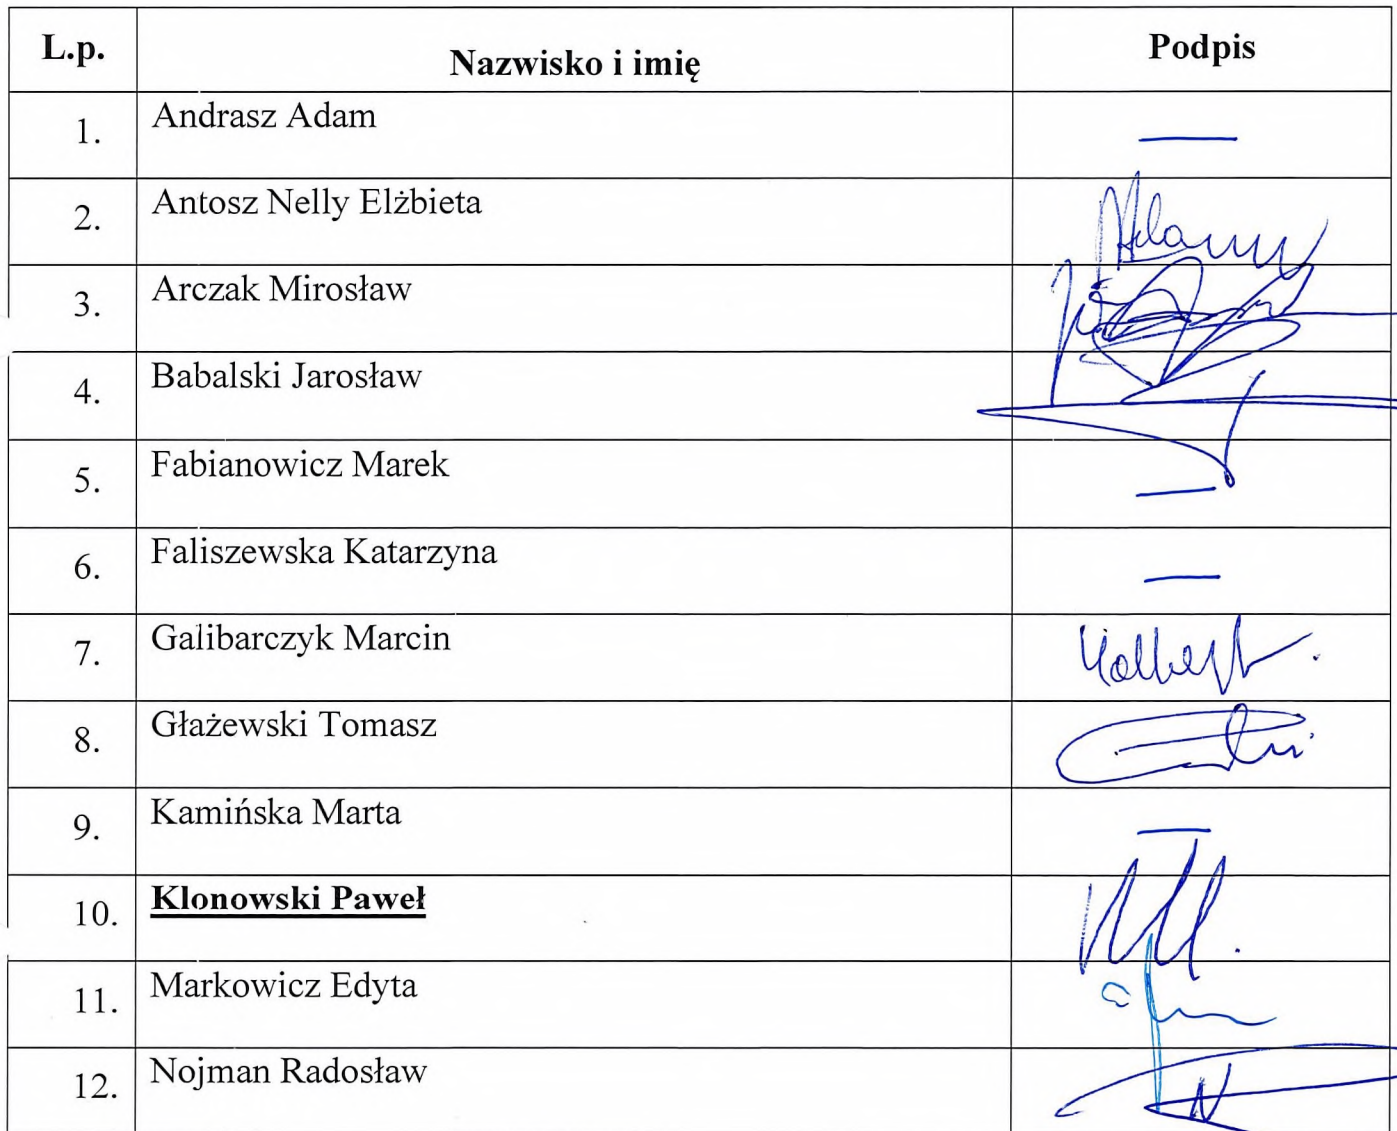 L.p. Nazwisko i imię Podpis
1. Andrasz Adam —
2. Antosz Nelly Elżbieta
3. Arczak Mirosław
4. Babalski Jarosław
5. Fabianowicz Marek —
6. Faliszewska Katarzyna —
7. Galibarczyk Marcin
8. Głażewski Tomasz
9. Kamińska Marta —
10. Klonowski Paweł
11. Markowicz Edyta
12. Nojman Radosław